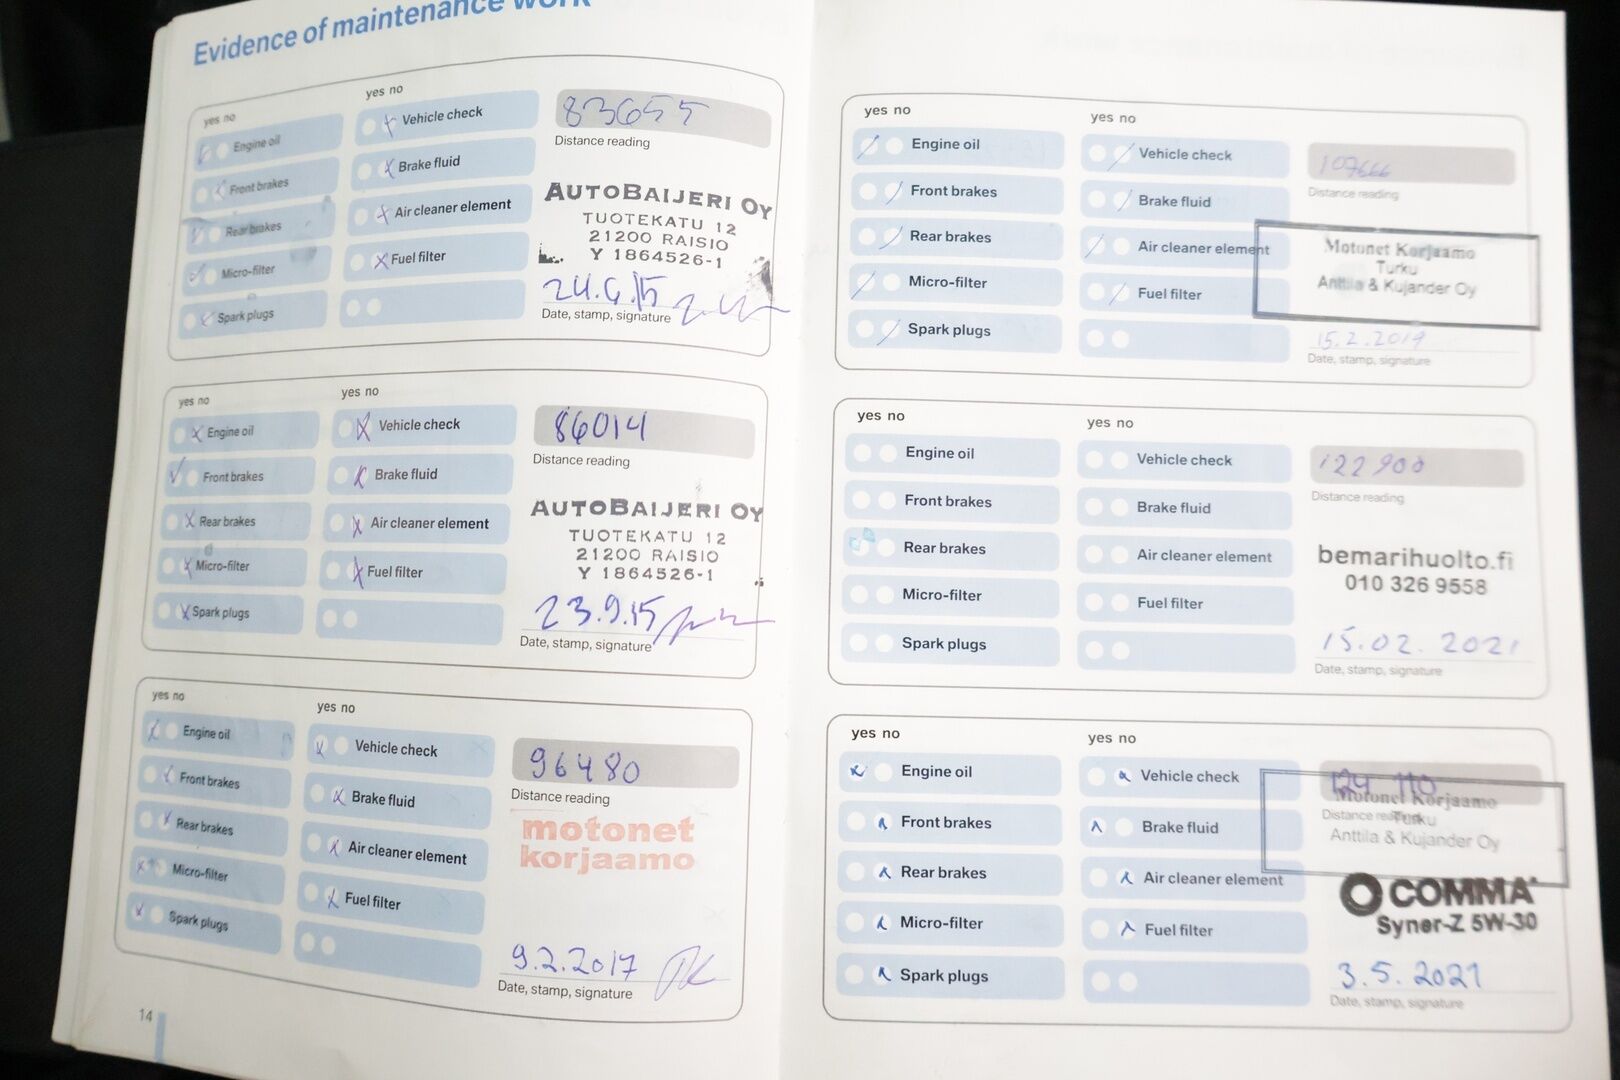 Evidence of maintenance work
yes no
yes no
Engine oil
Vehicle check
Front brakes
Brake fluid
Rear brakes
Air cleaner element
Micro-filter
Fuel filter
Spark plugs
83655
Distance reading
AUTOBAIJERI OY
TUOTEKATU 12
21200 RAISIO
Y 1864526-1
24.6.15
Date, stamp, signature
yes no
yes no
Engine oil
Vehicle check
Front brakes
Brake fluid
Rear brakes
Air cleaner element
Micro-filter
Fuel filter
Spark plugs
86014
Distance reading
AUTOBAIJERI OY
TUOTEKATU 12
21200 RAISIO
Y 1864526-1
23.9.15
Date, stamp, signature
yes no
yes no
Engine oil
Vehicle check
Front brakes
Brake fluid
Rear brakes
Air cleaner element
Micro-filter
Fuel filter
Spark plugs
96480
Distance reading
motonet
korjaamo
9.2.2017
Date, stamp, signature
14
yes no
yes no
Engine oil
Vehicle check
Front brakes
Brake fluid
Rear brakes
Air cleaner element
Micro-filter
Fuel filter
Spark plugs
107666
Distance reading
Motonet Korjaamo
Turku
Anttila & Kujander Oy
15.2.2019
Date, stamp, signature
yes no
yes no
Engine oil
Vehicle check
Front brakes
Brake fluid
Rear brakes
Air cleaner element
Micro-filter
Fuel filter
Spark plugs
122900
Distance reading
bemarihuolto.fi
010 326 9558
15.02.2021
Date, stamp, signature
yes no
yes no
Engine oil
Vehicle check
Front brakes
Brake fluid
Rear brakes
Air cleaner element
Micro-filter
Fuel filter
Spark plugs
124 110
Distance reading
Motonet Korjaamo
Turku
Anttila & Kujander Oy
COMMA
Syner-Z 5W-30
3.5.2021
Date, stamp, signature